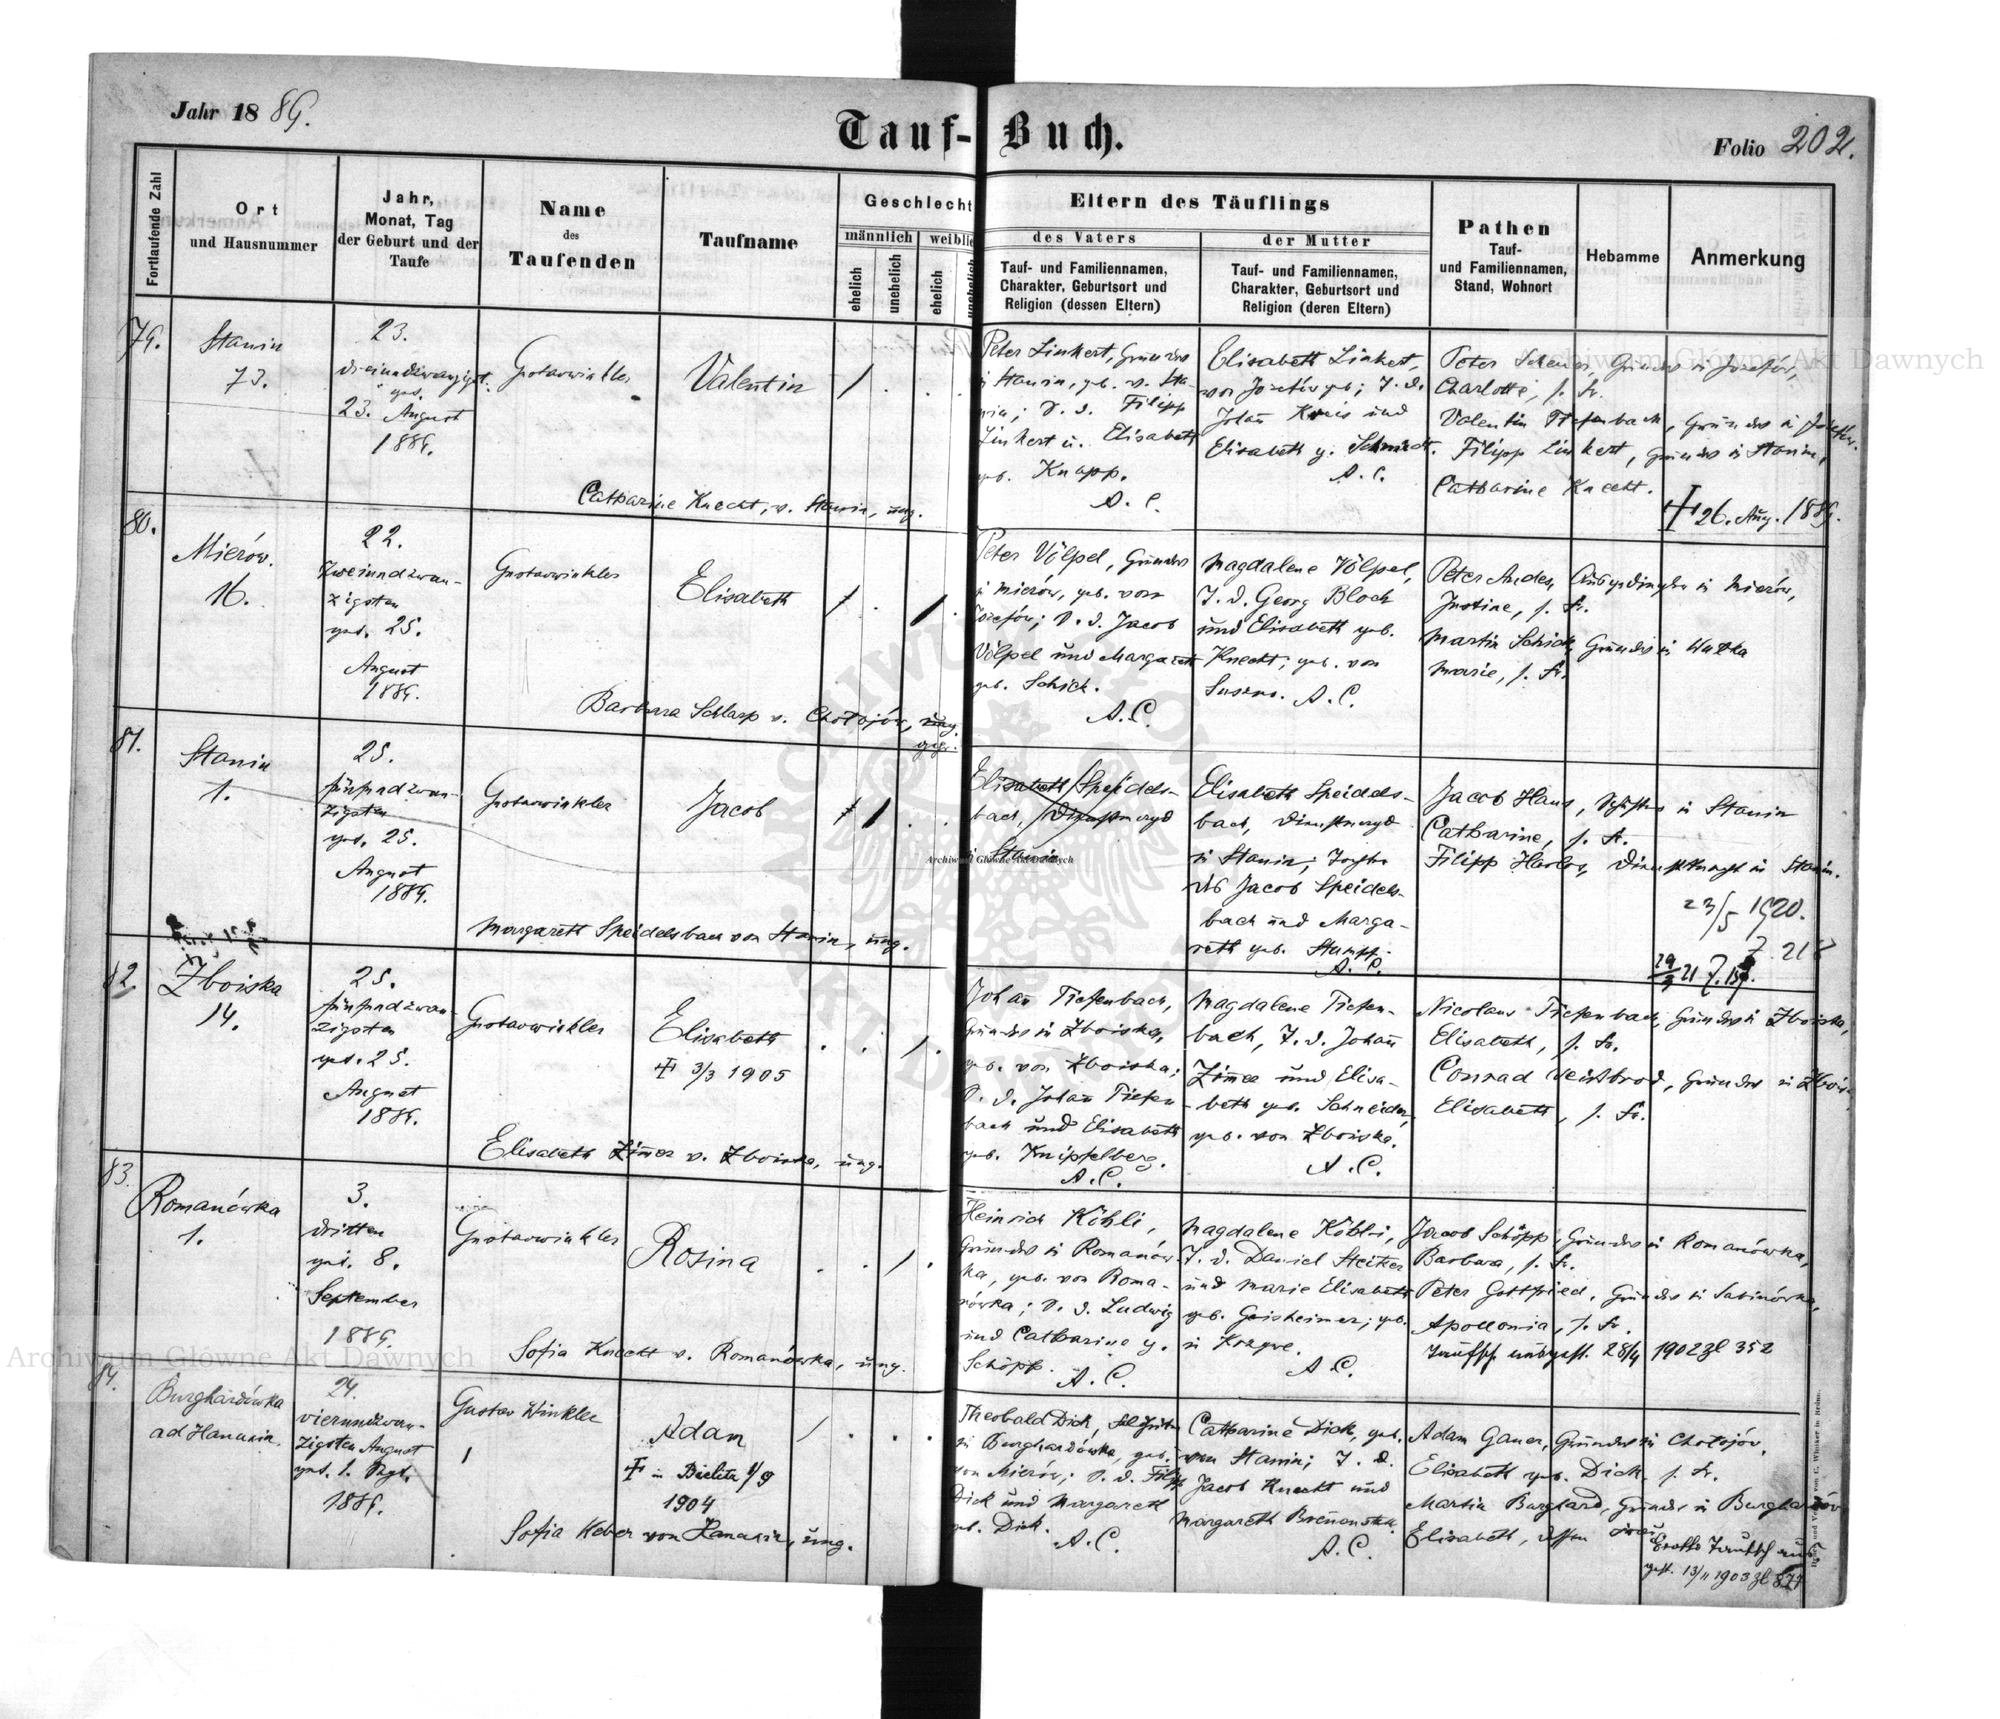 Jahr 1889.
Tauf-Buch.
Folio 202.
Fortlaufende Zahl
Ort
und Hausnummer
Jahr,
Monat, Tag
der Geburt und der
Taufe
Name
des
Taufenden
Taufname
Geschlecht
männlich
weiblic
ehelich
unehelich
ehelich
unehelich
Eltern des Täuflings
des Vaters
Tauf- und Familiennamen,
Charakter, Geburtsort und
Religion (dessen Eltern)
der Mutter
Tauf- und Familiennamen,
Charakter, Geburtsort und
Religion (deren Eltern)
Pathen
Tauf-
und Familiennamen,
Stand, Wohnort
Hebamme
Anmerkung
79.
Stanin
73.
23.
dreiundzwanzigst.
get.
23. August
1889.
Gustavwinkler
Valentin
Catharine Knecht, v. Stanin, ung.
Peter Linkert, Grundws
in Stanin, geb. v. Sta-
nin; S. d. Filipp
Linkert u. Elisabeth
geb. Knapp.
A. C.
Elisabeth Linkert,
von Józefów geb; T. d.
Johañ Kreis und
Elisabeth g. Schmidt.
A. C.
Peter Grundws in Józefów,
Charlotte, s. Fr.
Valentin Tiefenbach, Grundws in
Filipp Linkert, Grundws in Stanin,
Catharine Knecht.
26. Aug. 1889.
80.
Mierów.
16.
22.
Zweiundzwan-
zigsten
get. 25.
August
1889.
Gustavwinkler
Elisabeth
Barbara Schlarp v. Chołojów, ung.
gepr.
Peter Völpel, Grundws
in Mierów, geb. von
Józefów; S. d. Jacob
Völpel und Margareth
geb. Schick.
A. C.
Magdalene Völpel,
T. d. Georg Bloch
und Elisabeth geb.
Knecht, geb. von
Suszno. A. C.
Peter Andes, Ausgedingler in Mierów,
Justine, s. Fr.
Martin Schick, Grundws in
Marie, s. Fr.
81.
Stanin
1.
25.
fünfundzwan-
zigsten
get. 25.
August
1889.
Gustavwinkler
Jacob
Margareth Speidelsbach von Stanin, ung.
Elisabeth Speidels-
bach, Dienstmagd
in Stanin
Elisabeth Speidels-
bach, Dienstmagd
in Stanin; Tochter
des Jacob Speidels-
bach und Marga-
reth geb. Stumpf.
A. C.
Jacob Haus, in Stanin
Catharine, s. Fr.
Filipp Harlos, Dienstknecht in Stanin.
23/5 1920.
Z. 218
29/3 21 Z.
82.
Zboiska
14.
25.
fünfundzwan-
zigsten
get. 25.
August
1889.
Gustavwinkler
Elisabeth
3/3 1905
Elisabeth Zim̄er v. Zboiska, ung.
Johañ Tiefenbach,
Grundws in Zboiska,
geb. von Zboiska;
S. d. Johañ Tiefen-
bach und Elisabeth
geb. Knipfelberg.
A. C.
Magdalene Tiefen-
bach, T. d. Johañ
Zim̄er und Elisa-
beth geb. Schneider,
geb. von Zboiska.
A. C.
Nicolaus Tiefenbach, Grundws in Zboiska,
Elisabeth, s. Fr.
Conrad Weißbrod, Grundws in Zboiska,
Elisabeth, s. Fr.
83.
Romanówka
1.
3.
dritten
get. 8.
September
1889.
Gustavwinkler
Rosina
Sofia Knecht v. Romanówka, ung.
Heinrich Köhli,
Grundws in Romanów-
ka, geb. von Roma-
nówka; S. d. Ludwig
und Catharine g.
Schöpp.
A. C.
Magdalene Köhli,
T. d. Daniel
und Marie Elisabeth
geb. Geisheimer; geb.
in
A. C.
Jacob Schöpp, Grundws in Romanówka,
Barbara, s. Fr.
Peter Gottfried, Grundws in Sabinówka,
Apollonia, s. Fr.
Taufsch. ausgest. 28/4 1902 Zl 352
84.
Burghardówka
ad Hanunin.
24.
vierundzwan-
zigsten August
get. 1. Sept.
1889.
Gustav Winkler
Adam
in Bielitz 9/9
1904
Sofia Keber von Hanunin, ung.
Theobald Dick,
in Burghardówka, geb.
von Mierów; S. d. Filipp
Dick und Margareth
geb. Dick.
A. C.
Catharine Dick, geb.
von Stanin; T. d.
Jacob Knecht und
Margareth
A. C.
Adam Gauer, Grundws in Chołojów.
Elisabeth geb. Dick. s. Fr.
Martin Burghard, Grundws in Burghardów
Elisabeth, dessen Frau
Taufsch aus
gest. 13/11 1903 Zl 877
Archiwum Główne Akt Dawnych
Archiwum Główne Akt Dawnych
Archiwum Główne Akt Dawnych